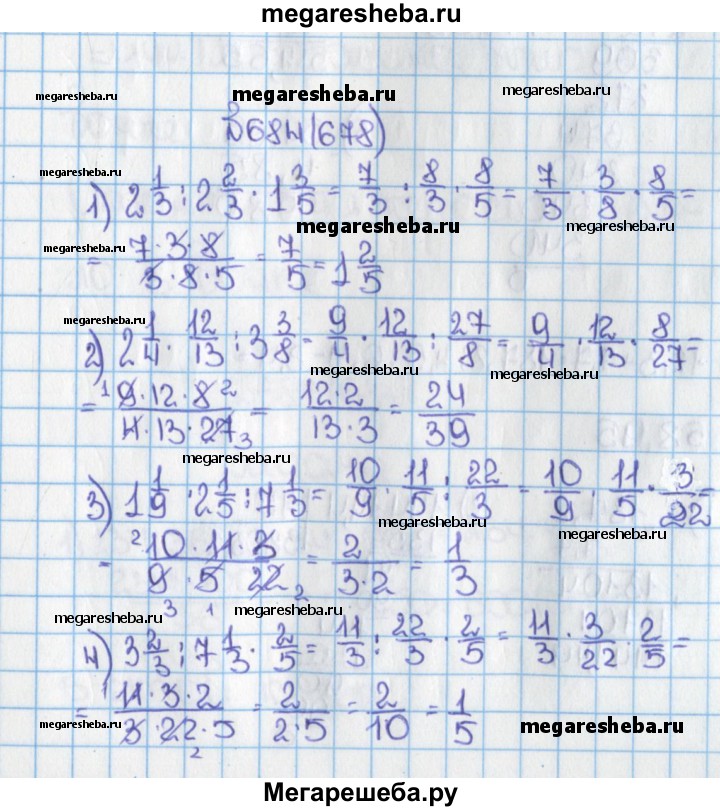 megaresheba.ru
megaresheba.ru megaresheba.ru megaresheba.ru
№684(678)
megaresheba.ru
1) 2 1/3 : 2 2/3 · 1 3/5 = 7/3 : 8/3 · 8/5 = 7/3 · 3/8 · 8/5 =
megaresheba.ru megaresheba.ru megaresheba.ru
= 7·3·8/3·8·5 = 7/5 = 1 2/5
megaresheba.ru megaresheba.ru
2) 2 1/4 · 12/13 : 3 3/8 = 9/4 · 12/13 : 27/8 = 9/4 · 12/13 · 8/27 =
megaresheba.ru megaresheba.ru
= 1 9·12·8 2/4·13·27 3 = 12·2/13·3 = 24/39
megaresheba.ru megaresheba.ru
3) 1 1/9 · 2 1/5 : 7 1/3 = 10/9 · 11/5 : 22/3 = 10/9 · 11/5 · 3/22 =
megaresheba.ru megaresheba.ru
= 2 10·11·3/9·5 22 2 = 2/3·2 = 1/3
3 1
megaresheba.ru megaresheba.ru megaresheba.ru
4) 3 2/3 : 7 1/3 · 2/5 = 11/3 : 22/3 · 2/5 = 11/3 · 3/22 · 2/5 =
= 1 11·3·2/3·22·5 = 2/2·5 = 2/10 = 1/5
2
megaresheba.ru megaresheba.ru megaresheba.ru
Мегарешеба.ру